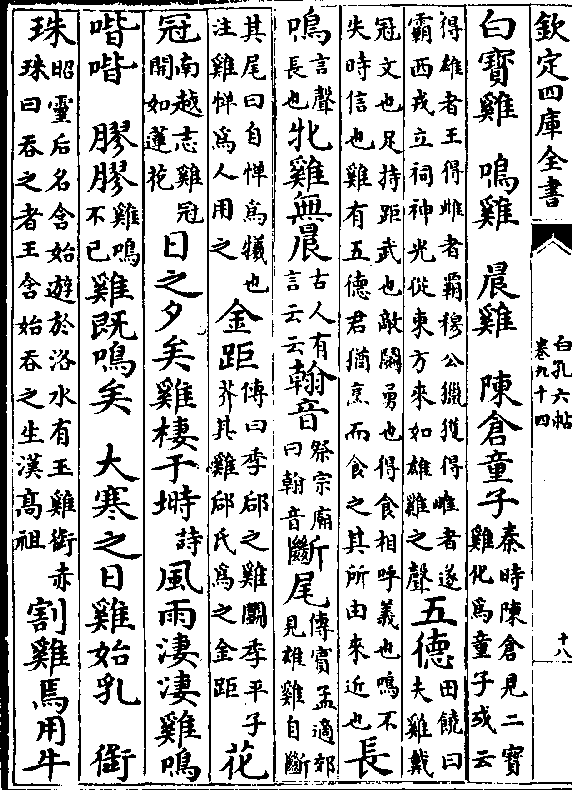 欽定四庫全書
白孔六帖
卷九十四
十八
白寶雞　鳴雞　晨雞　陳倉童子秦時陳倉見二寶雞化爲童子或云
得雄者王得雌者霸穆公獵獲得雌者遂霸西戎立祠神光從東方來如雄雞之聲五德田饒曰夫雞戴
冠文也足持距武也敵鬬勇也得食相呼義也鳴不失時信也雞有五德君猶烹而食之其所由來近也長
鳴言聲長也牝雞無晨古人有言云云翰音祭宗廟曰翰音斷尾傳賓孟適郊見雄雞自斷
其尾曰自憚爲犧也注雞憚爲人用之金距傳曰季郈之雞鬬季平子芥其雞郈氏爲之金距花
冠南越志雞冠開如蓮花日之夕矣雞棲于塒詩風雨淒淒雞鳴
喈喈　膠膠雞鳴不已雞既鳴矣　大寒之日雞始乳　銜
珠昭靈后名含始遊於洛水有玉雞銜赤珠曰吞之者王含始吞之生漢高祖割雞焉用牛